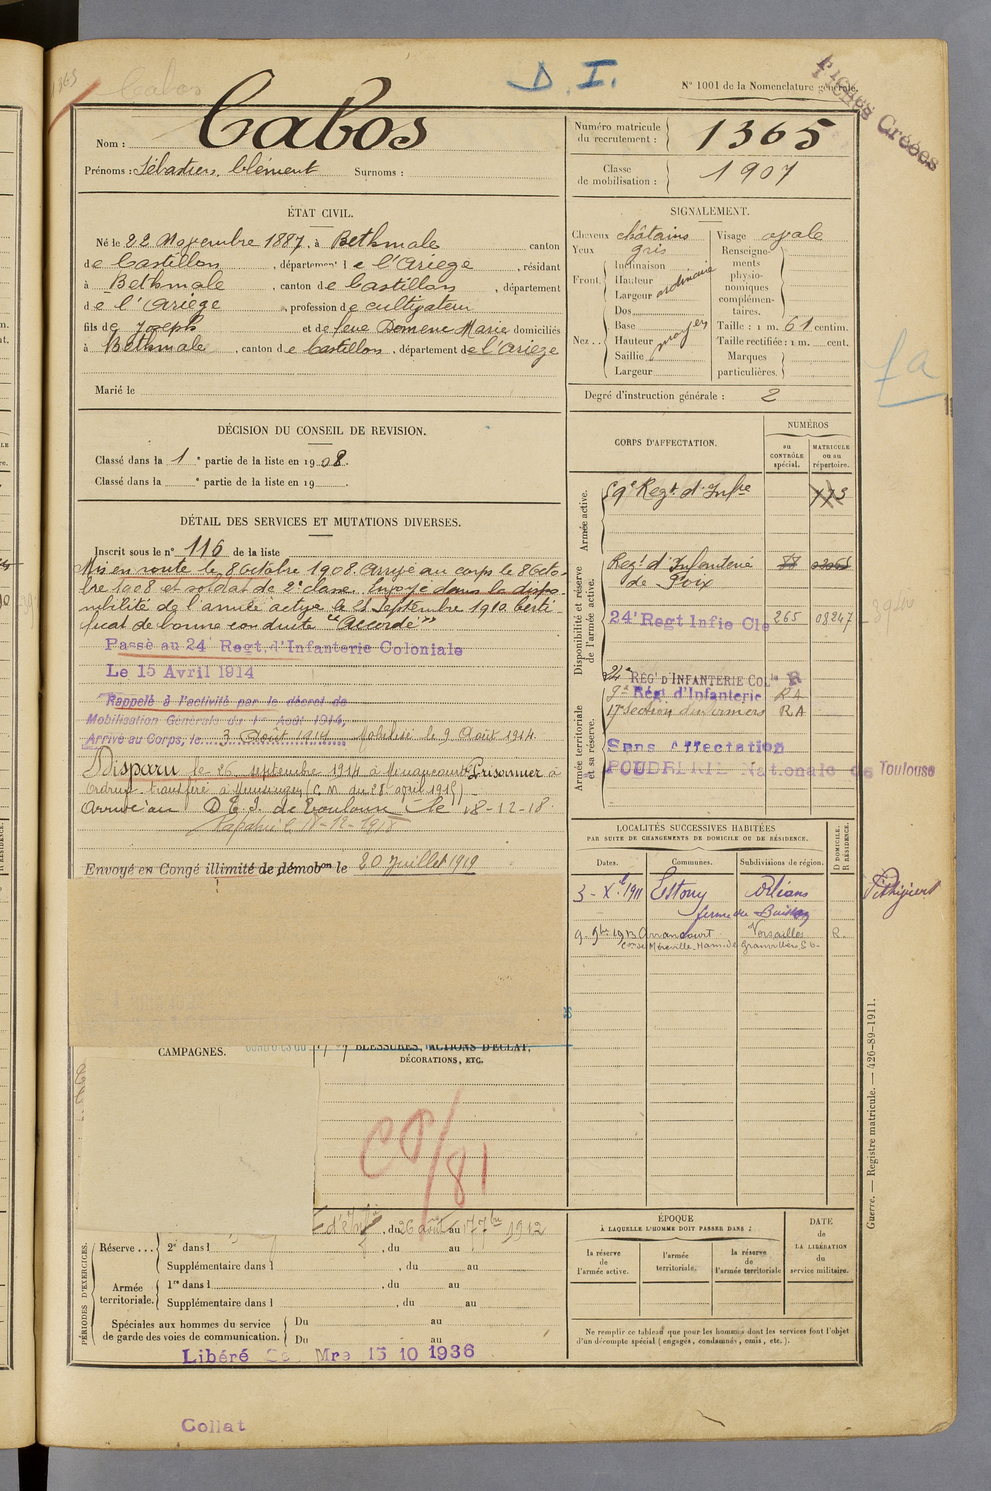 1365
Cabos
D. I.
N° 1001 de la Nomenclature générale.
Fiches Créées
Nom : Cabos
Prénoms : Sébastien, Clément Surnoms :
Numéro matricule du recrutement : 1365
Classe de mobilisation : 1907
ÉTAT CIVIL.
Né le 22 Novembre 1887, à Bethmale canton
de Castillon, département de l'Ariège, résidant
à Bethmale, canton de Castillon, département
de l'Ariège, profession de cultivateur
fils de Joseph et de feue Domenc Marie domiciliés
à Bethmale, canton de Castillon, département de l'Ariège
Marié le
SIGNALEMENT.
Cheveux châtains
Yeux gris
Front. Inclinaison
Hauteur
Largeur
ordinaire
Nez .. Dos
Base
Hauteur
Saillie
Largeur
moyen
Visage ovale
Renseignements physionomiques complémentaires.
Taille : 1 m. 61 centim.
Taille rectifiée : 1 m. cent.
Marques particulières.
Degré d'instruction générale : 2
DÉCISION DU CONSEIL DE REVISION.
Classé dans la 1e partie de la liste en 1908.
Classé dans la e partie de la liste en 19 .
DÉTAIL DES SERVICES ET MUTATIONS DIVERSES.
Inscrit sous le n° 116 de la liste
Mis en route le 8 Octobre 1908. Arrivé au corps le 8 Octo-
bre 1908 et soldat de 2e classe. Envoyé dans la dispo-
nibilité de l'armée active le 25 Septembre 1910. Certi-
ficat de bonne conduite "Accordé"
Passé au 24e Regt. d'Infanterie Coloniale
Le 15 Avril 1914
Rappelé à l'activité par le décret de
Mobilisation Générale du 1er Août 1914,
Arrivé au Corps, le 3 Août 1914 Mobilisé le 9 Août 1914.
Disparu le 26 septembre 1914 à Prisonnier à
Ordruf transféré à Munsingen (C M du 28 avril 1915)
Arrivé au D. T. I. de Toulouse le 18-12-18
Rapatrié le 18-12-1918
Envoyé en Congé illimité de démobon le 20 Juillet 1919
CORPS D'AFFECTATION.
NUMÉROS
au CONTRÔLE spécial.
MATRICULE ou au répertoire.
Armée active.
59e Regt d'Infie
113
Disponibilité et réserve de l'armée active.
Regt d'Infanterie
de Foix
24e Regt Infie Cle 265 08247
Armée territoriale et sa réserve.
24e RÉGt D'INFANTERIE COLle R
9e Régt d'Infanterie RA
17e Section d'infirmiers RA
Sans Affectation
POUDRERIE Nationale de Toulouse
LOCALITÉS SUCCESSIVES HABITÉES
PAR SUITE DE CHANGEMENTS DE DOMICILE OU DE RÉSIDENCE.
Dates. Communes. Subdivisions de région.
D DOMICILE. R RÉSIDENCE.
3 - Xe. 1911 Estouy Orléans Pithiviers
ferme du Buisson
9. 9bre 1913 Arrancourt Versailles R.
Méréville
CAMPAGNES.
BLESSURES, ACTIONS D'ÉCLAT,
DÉCORATIONS, ETC.
CS/81
, du 26 août au 17 7bre 1912
PÉRIODES D'EXERCICES.
Réserve ... 2e dans l , du au
Supplémentaire dans l , du au
Armée territoriale. 1re dans l , du au
Supplémentaire dans l , du au
Spéciales aux hommes du service
de garde des voies de communication. Du au
Du au
Libéré Mre 15 10 1936
ÉPOQUE
À LAQUELLE L'HOMME DOIT PASSER DANS :
la réserve de l'armée active.
l'armée territoriale.
la réserve de l'armée territoriale
DATE de LA LIBÉRATION du service militaire.
Ne remplir ce tableau que pour les hommes dont les services font l'objet
d'un décompte spécial (engagés, condamnés, omis, etc.).
Guerre. — Registre matricule. — 426-89-1911.
Collat